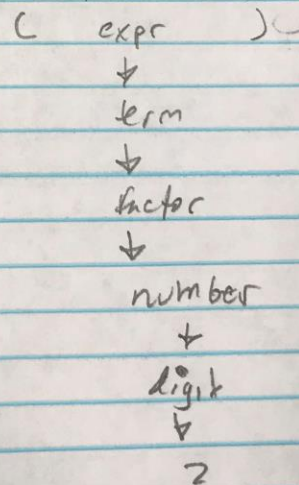 ( expr )
term
factor
number
digit
2